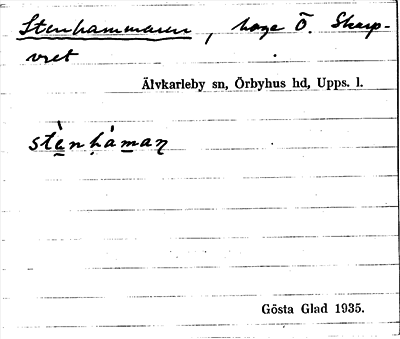 Stenhammaren, hage Ö. Skarp-
vret
Älvkarleby sn, Örbyhus hd, Upps. l.
stènhàmaɳ
Gösta Glad 1935.